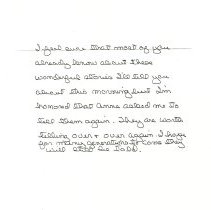 I feel sure that most of you
already know about these
wonderful stories I'll tell you
about this morning but I'm
honored that Anna asked me to
tell them again. They are worth
telling over + over again. I hope
for many generations to come they
will be told.